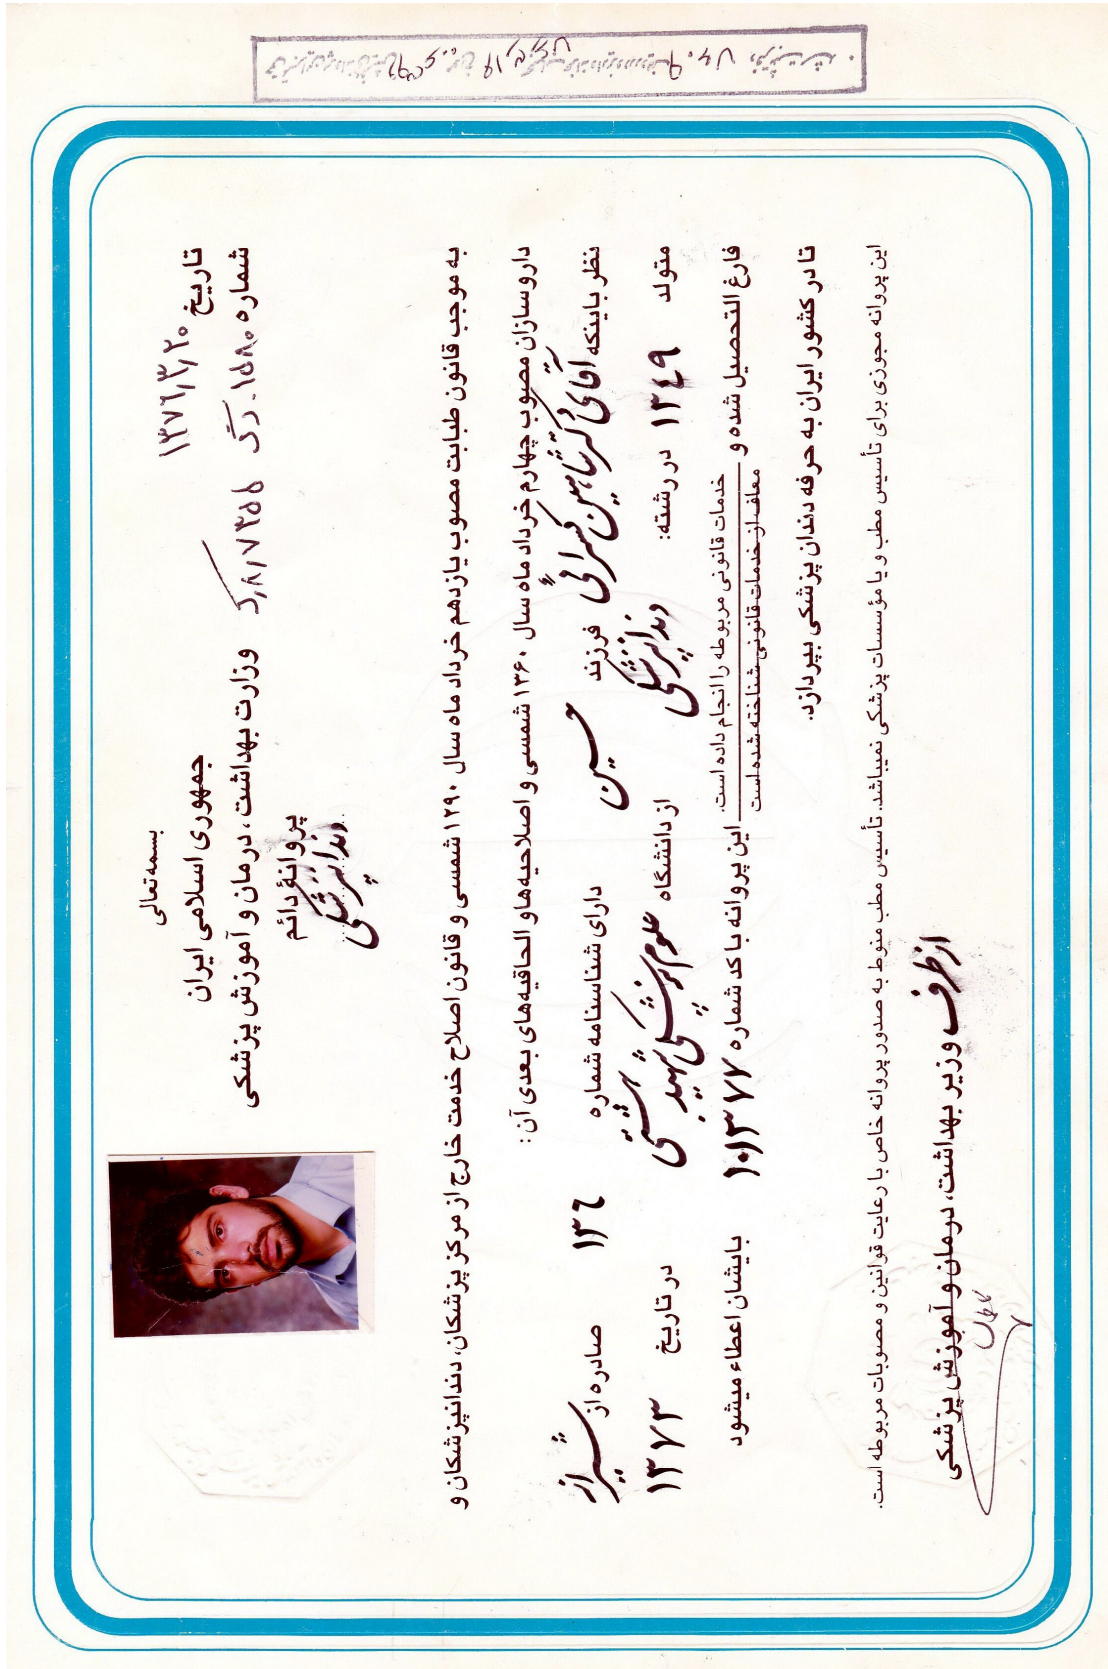 بسمه تعالی
جمهوری اسلامی ایران
وزارت بهداشت، درمان و آموزش پزشکی
پروانهٔ دائم
دندانپزشکی
تاریخ ۱۳۷۶,۳,۲۰
شماره ۱۵۸۰ـ
به موجب قانون طبابت مصوب یازدهم خرداد ماه سال ۱۲۹۰ شمسی و قانون اصلاح خدمت خارج از مرکز پزشکان، دندانپزشکان و
داروسازان مصوب چهارم خرداد ماه سال ۱۳۶۰ شمسی و اصلاحیه‌ها و الحاقیه‌های بعدی آن :
نظر باینکه آقای دکتر شاهین کسرائی فرزند حسین دارای شناسنامه شماره ۱۳۶ صادره از شیراز
متولد ۱۳۴۹ در رشته: دندانپزشکی از دانشگاه علوم پزشکی شهید بهشتی در تاریخ ۱۳۷۳
فارغ التحصیل شده و خدمات قانونی مربوطه را انجام داده است. این پروانه با کد شماره ۱۰۱۳۷۷ بایشان اعطاء میشود
معاف از خدمات قانونی شناخته شده است
تا در کشور ایران به حرفه دندان پزشکی بپردازد.
این پروانه مجوزی برای تأسیس مطب و یا مؤسسات پزشکی نمیباشد. تأسیس مطب منوط به صدور پروانه خاص با رعایت قوانین و مصوبات مربوطه است.
از طرف وزیر بهداشت، درمان و آموزش پزشکی